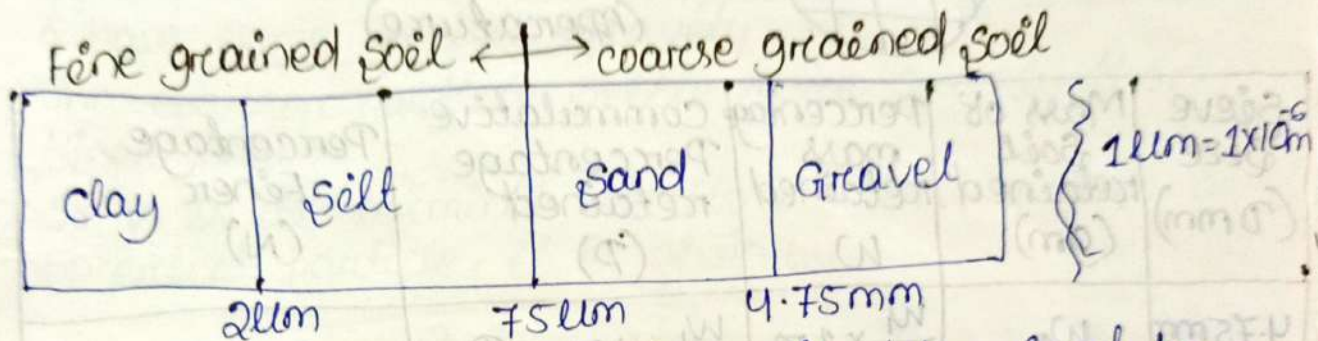 Fine grained soil ← → coarse grained soil
Clay Silt Sand Gravel 1um = 1x10^-6m
2um 75um 4.75mm